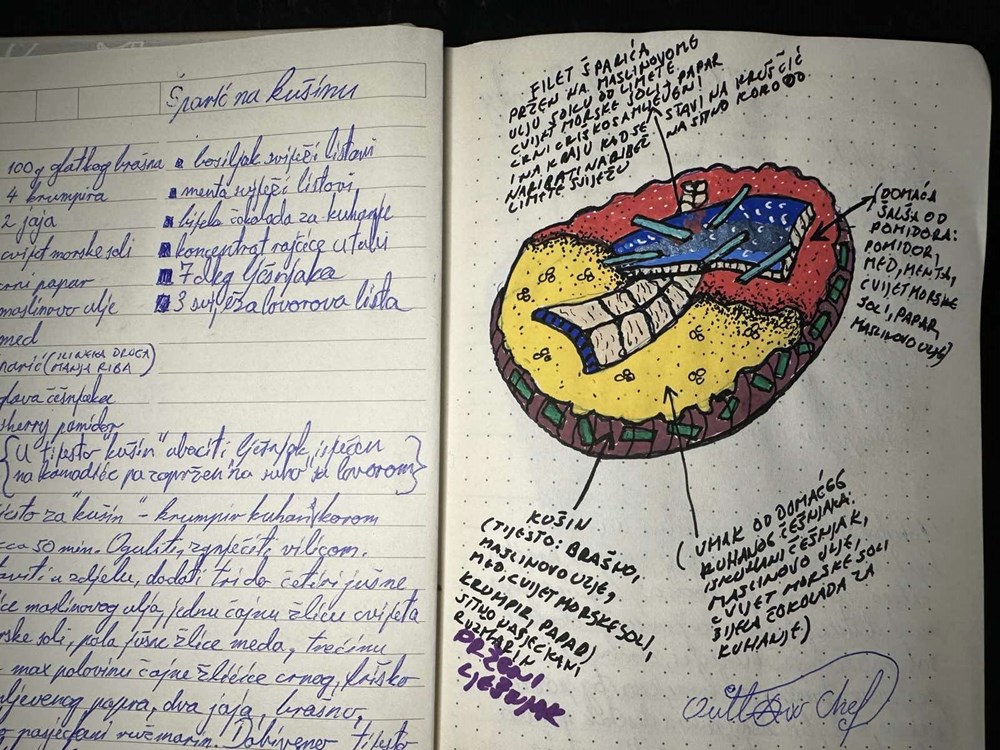 Šparić na kušinu
100g glatkog brašna
4 krumpira
2 jaja
cvijet morske soli
crni papar
maslinovo ulje
med
šparić (ILI NEKA DRUGA MANJA RIBA)
glava češnjaka
sherry pomidor
bosiljak svježi listovi
menta svježi listovi,
bijela čokolada za kuhanje
koncentrat rajčice u tubi
7 deg lješnjaka
3 svježa lovorova lista
{ U tijesto "kušin" ubaciti lješnjak, isječen
na komadiće pa zapržen "na suho" sa lovorom }
tijesto za "kušin" - krumpir kuhan s korom
cca 50 min. Oguliti, zgnječiti vilicom.
staviti u zdjelu, dodati tri do četiri jušne
žlice maslinovog ulja, jednu čajnu žlicu cvijeta
morske soli, pola jušne žlice meda, trećinu
- max polovinu čajne žličice crnog, friško
mljevenog papra, dva jaja, brašno,
nasjeckani ružmarin. Dobiveno tijesto
FILET ŠPARIĆA
PRŽEN NA MASLINOVOME
ULJU SOKU OD LIMETE
CVIJET MORSKE SOLI, PAPAR
CRNI FRIŠKO SAMLJEVENI
I NA KRAJU KAD SE STAVI NA KRUŠČIĆ
NARIBATI NARIBEŽ NA SITNO KORU OD
LIMETE SVJEŽU
(DOMAĆA
ŠALŠA OD
POMIDORA:
POMIDOR,
MED, MENTA,
CVIJET MORSKE
SOLI, PAPAR,
MASLINOVO ULJE)
KUŠIN
(TIJESTO: BRAŠNO,
MASLINOVO ULJE,
MED, CVIJET MORSKE SOLI,
KRUMPIR, PAPAR,
SITNO NASJECKANI,
RUŽMARIN
PRŽENI
LJEŠNJAK
(UMAK OD DOMAĆEG
KUHANOG ČEŠNJAKA:
ISKUHANI ČEŠNJAK,
MASLINOVO ULJE,
CVIJET MORSKE SOLI
BIJELA ČOKOLADA ZA
KUHANJE)
Chef